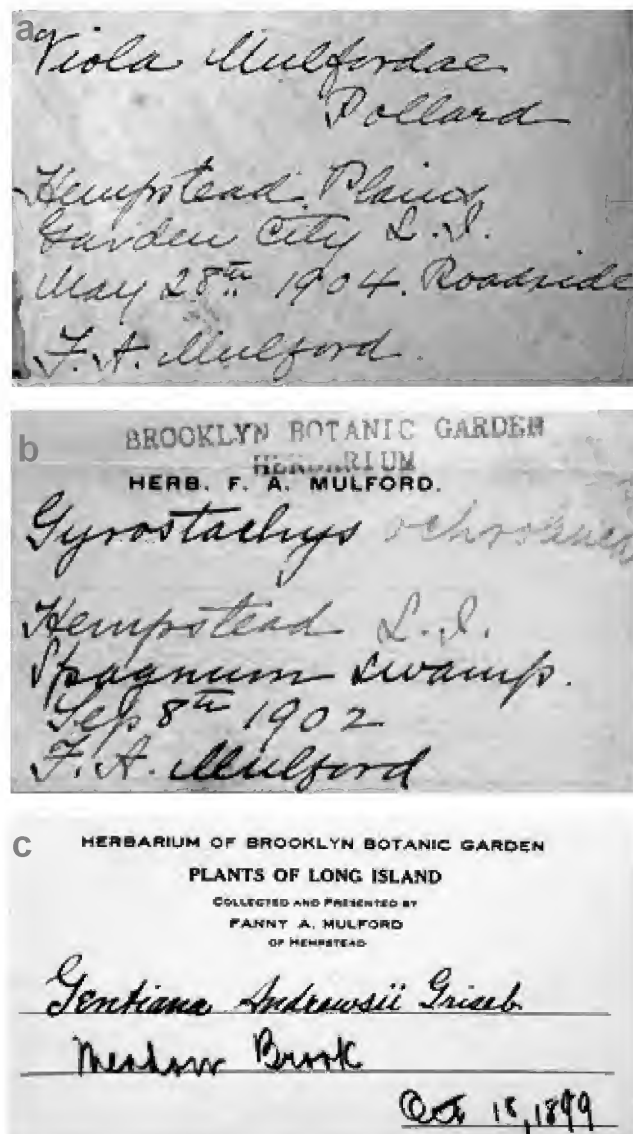 a
Viola Mulfordae
Pollard
Hempstead Plains
Garden City L. I.
May 28th 1904. Roadside
F. A. Mulford.
b
BROOKLYN BOTANIC GARDEN
HERBARIUM
HERB. F. A. MULFORD.
Gyrostachys ochroleuca
Hempstead L. I.
Spagnum swamp.
Sep 8th 1902
F. A. Mulford
c
HERBARIUM OF BROOKLYN BOTANIC GARDEN
PLANTS OF LONG ISLAND
COLLECTED AND PRESENTED BY
FANNY A. MULFORD
OF HEMPSTEAD
Gentiana Andrewsii Griseb.
Meadow Brook
Oct 18, 1899